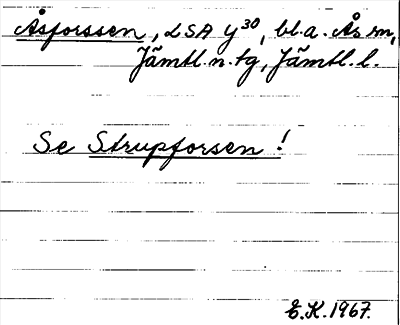 Åsforssen, LSA y³⁰, bl.a. Ås sn,
Jämtl. n. tg, Jämtl. l.
Se Strupforsen!
E.K. 1967.